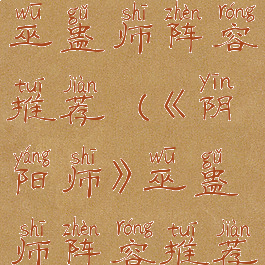 wū gǔ shī zhèn róng
巫 蛊 师 阵 容
tuī jiàn yīn
推 荐 (《 阴
yáng shī wū gǔ
阳 师 》 巫 蛊
shī zhèn róng tuī jiàn
师 阵 容 推 荐